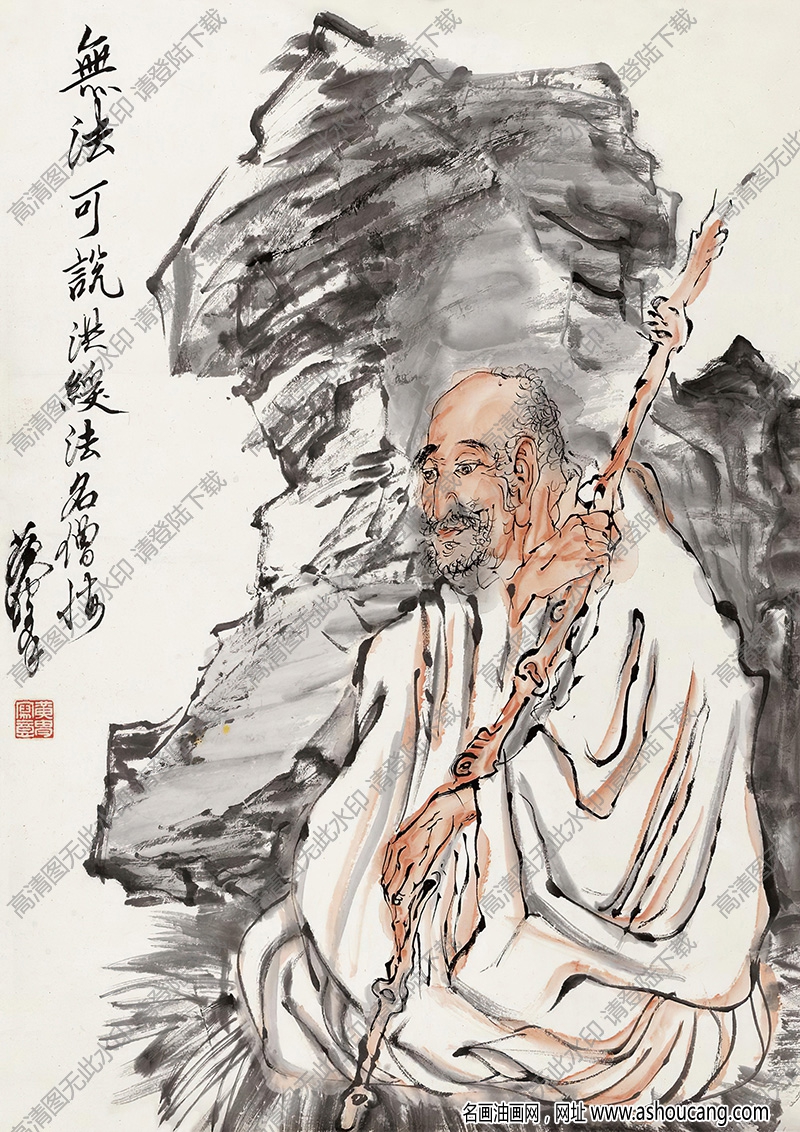 無法可說洪綬法名僧悔
高清图无此水印 请登陆下载
名画油画网，网址 www.ashoucang.com